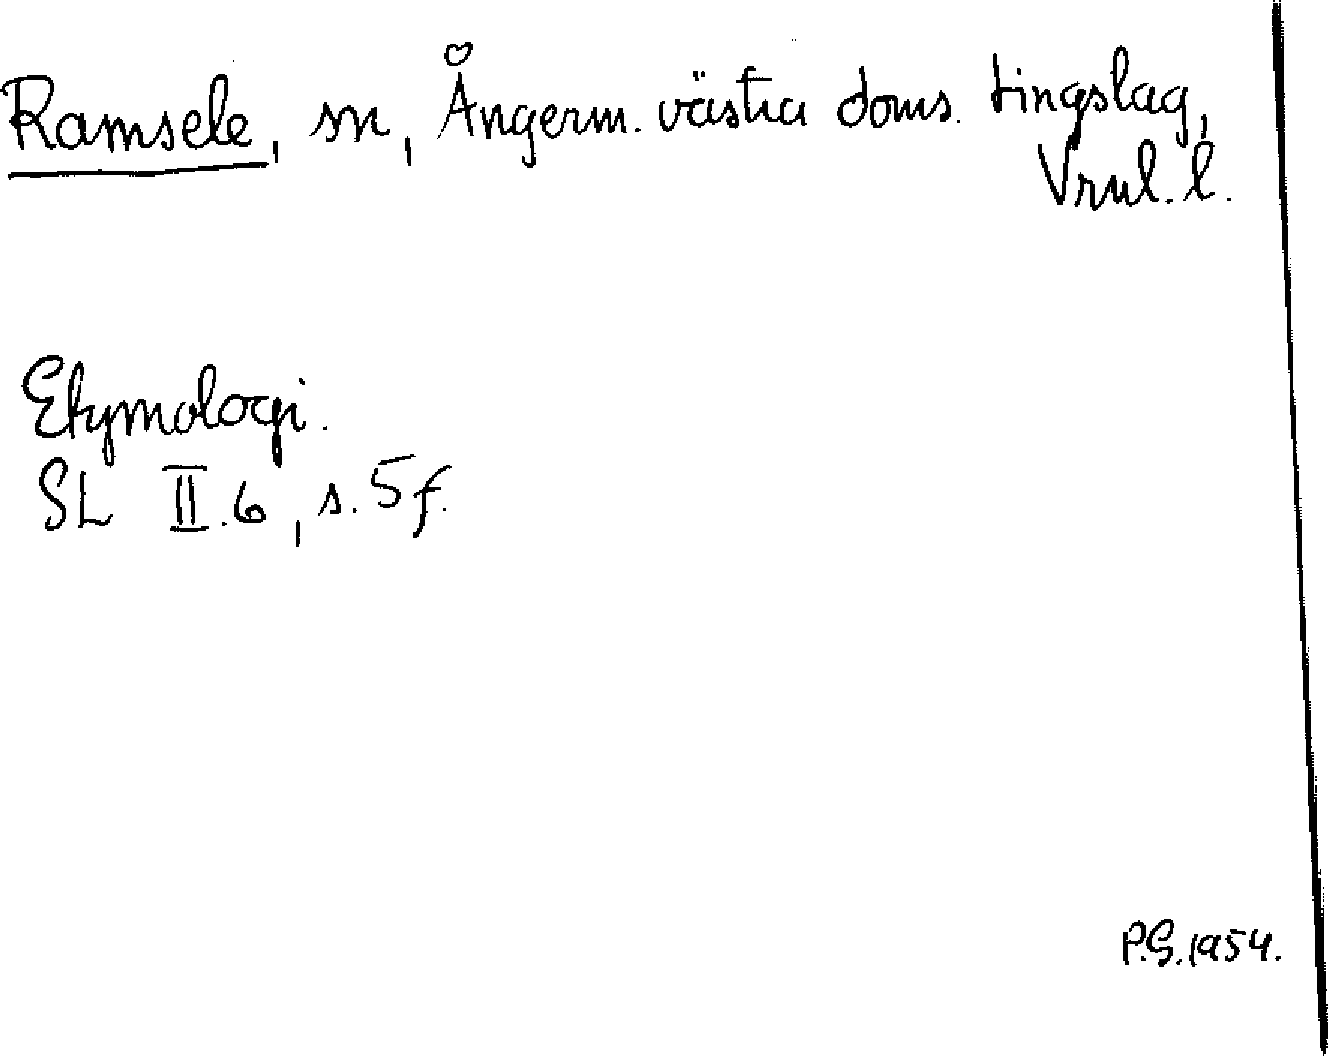 Ramsele, sn, Ångerm. västra doms. tingslag,
Vrnl. l.
Etymologi.
SL II.6, s. 5 f.
P.S. 1954.